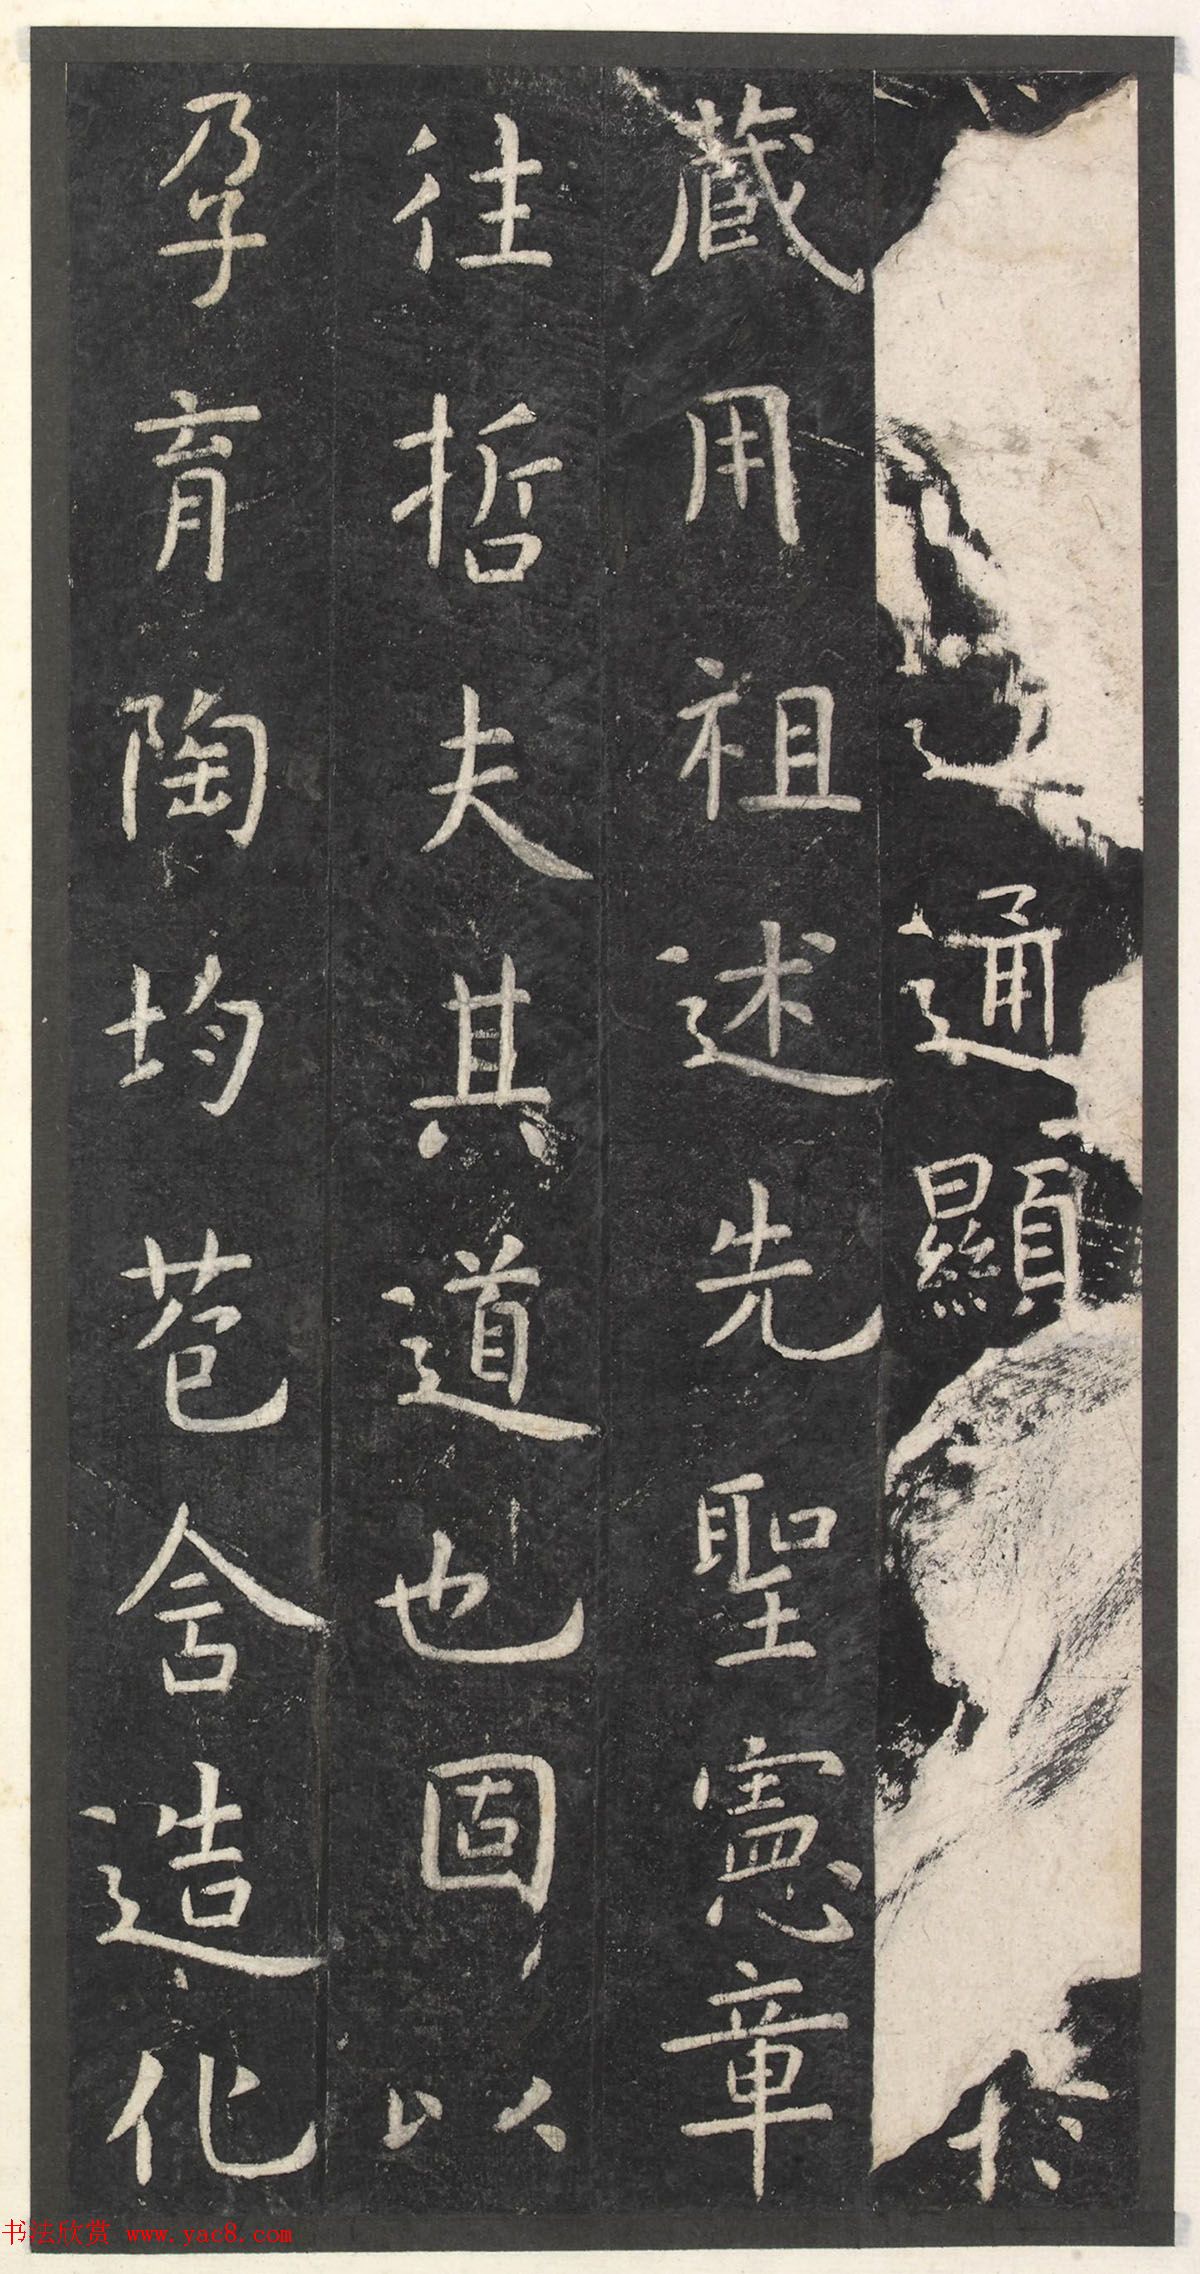 通顯於
藏用祖述先聖憲章
往哲夫其道也固以
孕育陶均苞含造化
书法欣赏 www.yac8.com